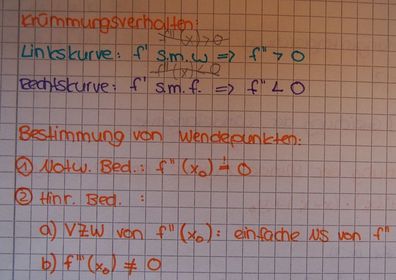 Krümmungsverhalten:
f''(x)>0
Linkskurve: f' s.m.w => f'' > 0
f''(x)<0
Rechtskurve: f' s.m.f. => f'' < 0
Bestimmung von Wendepunkten:
① Notw. Bed.: f''(x₀) != 0
② Hinr. Bed. :
a) VZW von f''(x₀): einfache NS von f''
b) f'''(x₀) ≠ 0